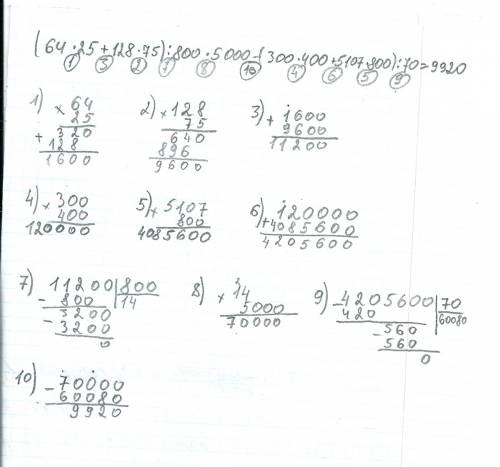 (64·25+128·75):800·5000-(300·400+5107·800):70=9920
1 3 2 7 8 10 4 6 5 9
1) × 64
25
+ 320
128
1600
2) × 128
75
640
896
9600
3) + 1600
9600
11200
4) × 300
400
120000
5) × 5107
800
4085600
6) + 120000
4085600
4205600
7) - 11200 | 800
800 14
- 3200
3200
0
8) × 14
5000
70000
9) - 4205600 | 70
420 60080
- 560
560
0
10) - 70000
60080
9920